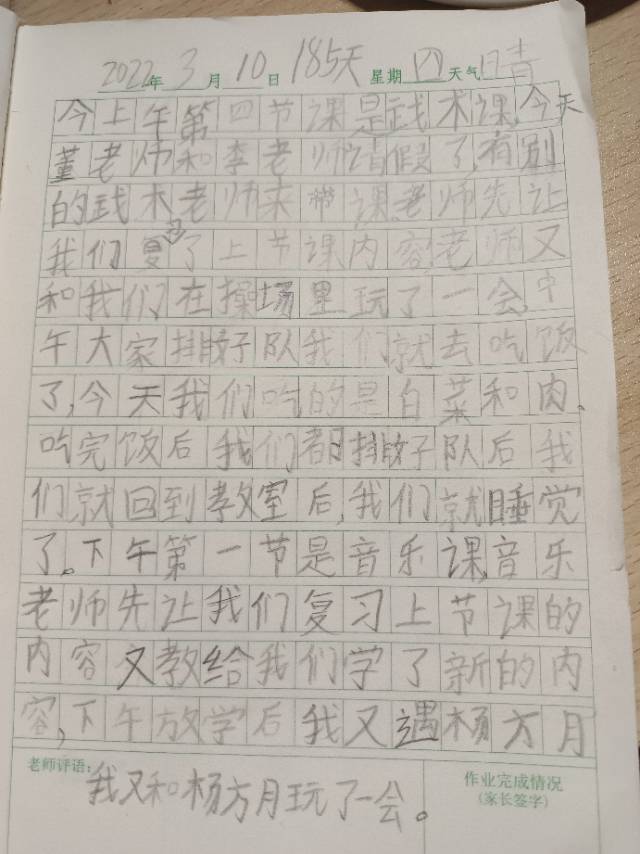 2022年3月10日 185天 星期四天气晴
今上午第四节课是武术课,今天
董老师和李老师请假了,有别
的武术老师来带课,老师先让
我们复习了上节课内容,老师又
和我们在操场里玩了一会,中
午大家排好队我们就去吃饭
了,今天我们吃的是白菜和肉,
吃完饭后我们都排好队后我
们就回到教室后,我们就睡觉
了。下午第一节是音乐课,音乐
老师先让我们复习上节课的
内容又教给我们学了新的内
容,下午放学后我又遇杨方月
老师评语:
我又和杨方月玩了一会。
作业完成情况
(家长签字)